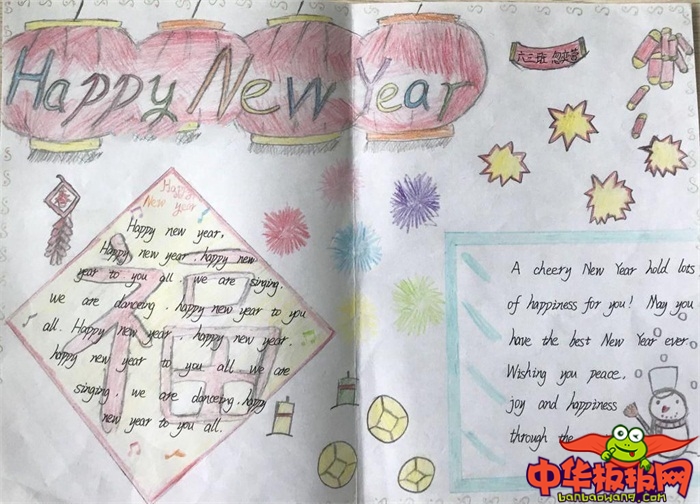 Happy New Year
六三班
Happy
New year
Happy new year,
Happy new year. happy new
year to you all. we are singing.
we are danceing. happy new year to you
all. Happy new year happy new year.
happy new year to you all we are
singing. we are danceing. happy
new year to you all.
福
A cheery New Year hold lots
of happiness for you! May you
have the best New Year ever.
Wishing you peace,
joy and happiness
through the
中华板报网
banbaowang.com